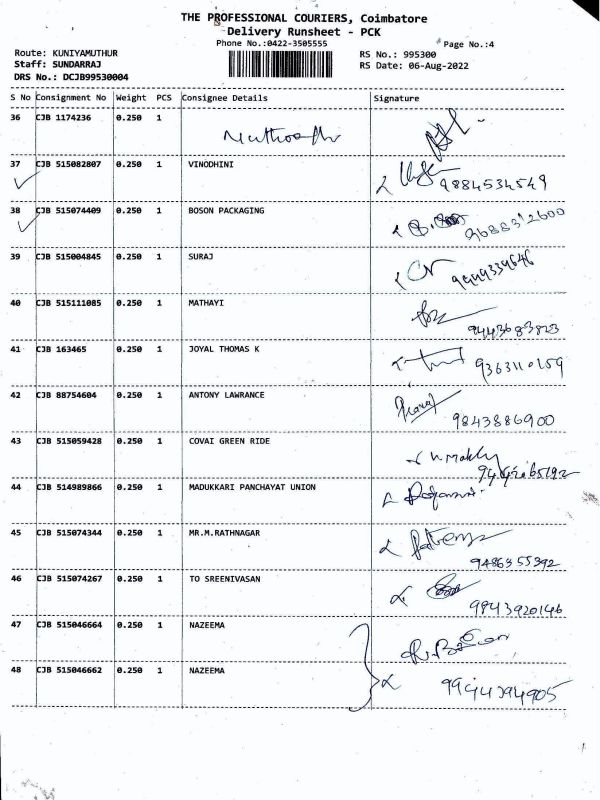 THE PROFESSIONAL COURIERS, Coimbatore
Delivery Runsheet - PCK
Phone No.:0422-3505555
Page No.:4
Route: KUNIYAMUTHUR
RS No.: 995300
Staff: SUNDARRAJ
RS Date: 06-Aug-2022
DRS No.: DCJB99530004
S No Consignment No Weight PCS Consignee Details Signature
36 CJB 1174236 0.250 1
37 CJB 515082807 0.250 1 VINODHINI
9884534549
38 CJB 515074409 0.250 1 BOSON PACKAGING
39 CJB 515004845 0.250 1 SURAJ
40 CJB 515111085 0.250 1 MATHAYI
9443683823
41 CJB 163465 0.250 1 JOYAL THOMAS K
9363110159
42 CJB 88754604 0.250 1 ANTONY LAWRANCE
9843886900
43 CJB 515059428 0.250 1 COVAI GREEN RIDE
44 CJB 514989866 0.250 1 MADUKKARI PANCHAYAT UNION
45 CJB 515074344 0.250 1 MR.M.RATHNAGAR
9486355392
46 CJB 515074267 0.250 1 TO SREENIVASAN
9843920146
47 CJB 515046664 0.250 1 NAZEEMA
48 CJB 515046662 0.250 1 NAZEEMA